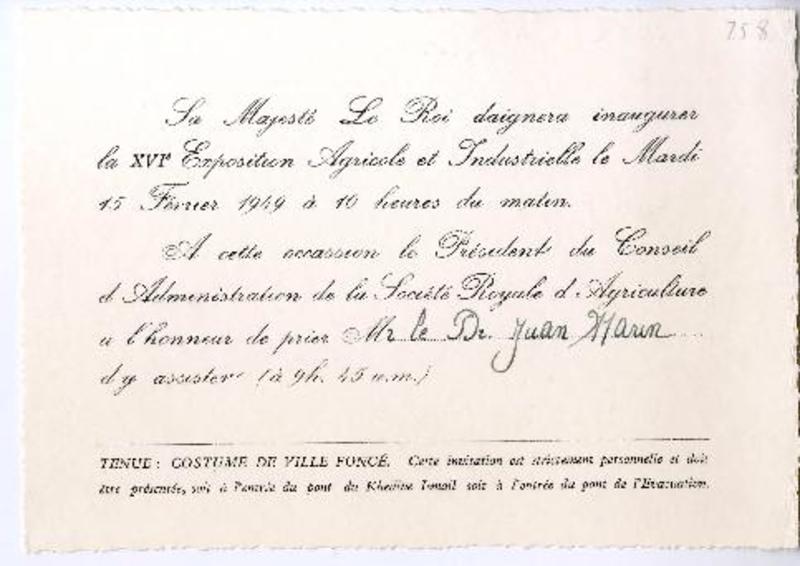 758
Sa Majesté Le Roi daignera inaugurer
la XVIe Exposition Agricole et Industrielle le Mardi
15 Février 1949 à 10 heures du matin.
A cette occassion le Président du Conseil
d'Administration de la Société Royale d'Agriculture
a l'honneur de prier Mr le Dr. Juan Marin
d'y assister (à 9h. 45 a.m.)
TENUE: COSTUME DE VILLE FONCÉ. Cette invitation est strictement personnelle et doit
être présentée, soit à l'entrée du pont du Khedive Ismail soit à l'entrée du pont de l'Evacuation.